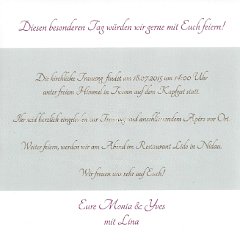 Diesen besonderen Tag würden wir gerne mit Euch feiern!
Die kirchliche Trauung findet um 16.00 Uhr
unter freiem Himmel in Twann auf dem Kapf statt.
Ihr seid herzlich eingeladen zur Trauung und anschliessendem Apéro vor Ort.
Weiter feiern, werden wir am Abend im Restaurant Lido in Nidau.
Wir freuen uns sehr auf Euch!
Eure Monia & Yves
mit Lina